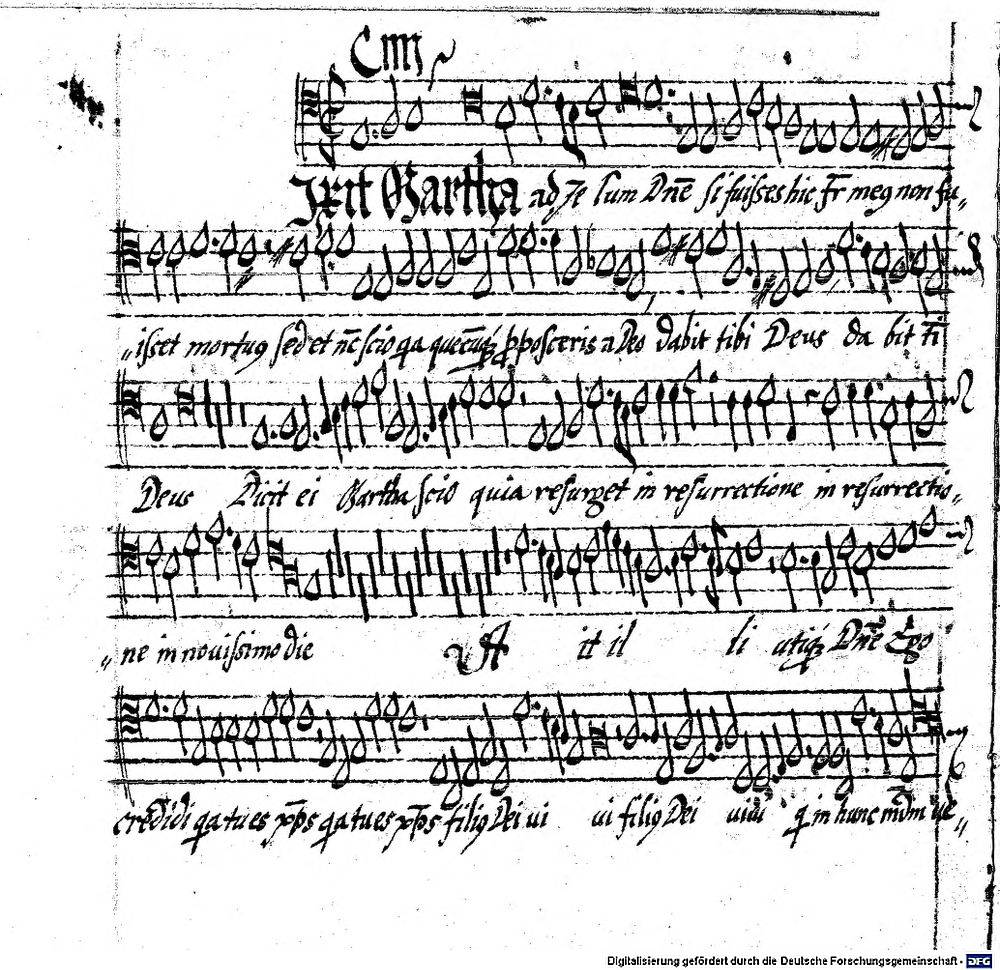 Dixit Martha ad Jesum Dn̄e si fuisses hic fr̄ meꝰ non fu„
„isset mortuꝰ sed et nc̄ scio qa quecūqꝫ poposceris a Deo dabit tibi Deus dabit tī
Deus Dicit ei Martha scio quia resurget in resurrectione in resurrectio„
„ne in novissimo die Ait illi utiqꝫ Dn̄e Ego
credidi qa tu es xp̄s qa tu es xp̄s filiꝰ Dei vi vi filiꝰ Dei vivi qi in hunc mūdm ve„
Digitalisierung gefördert durch die Deutsche Forschungsgemeinschaft - DFG